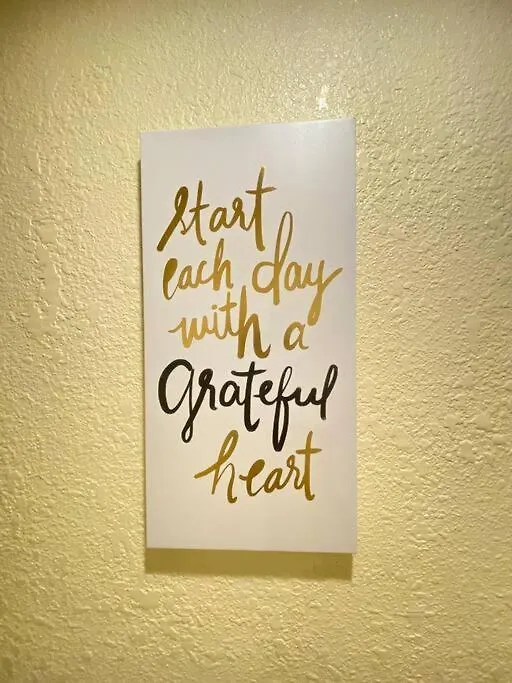 Start
each day
with a
Grateful
heart